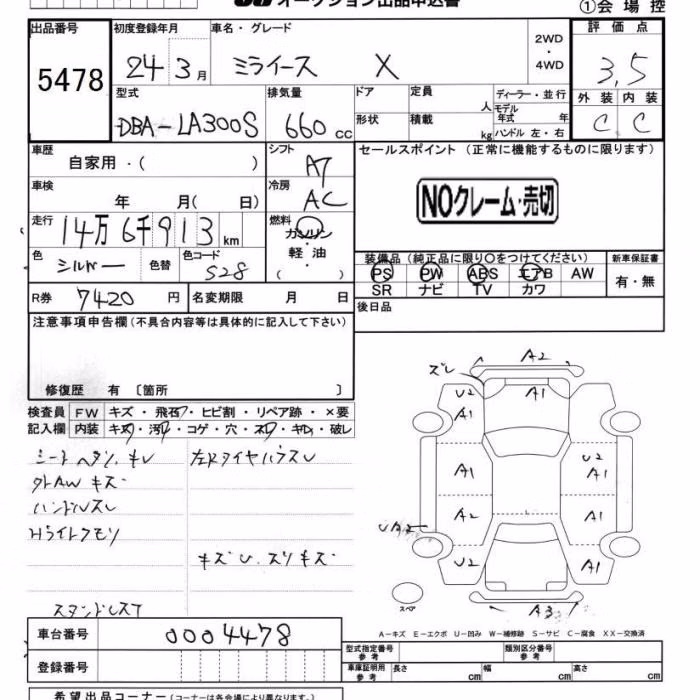 オークション出品申込書
①会場控
出品番号 初度登録年月 車名・グレード 評価点
5478 24年3月 ミライース X 2WD・4WD 3.5
型式 排気量 ドア 定員 人 ディーラー・並行 外装 内装
DBA-LA300S 660cc 形状 積載 kg モデル年式 年 ハンドル 左・右 C C
車歴 自家用・( ) シフト AT セールスポイント (正常に機能するものに限ります)
車検 年 月( 日) 冷房 AC NOクレーム・売切
走行 14万6千913km 燃料 ガソリン・軽油・( )
色 シルバー 色替 色コード S28 装備品 (純正品に限り○をつけてください) 新車保証書
PS PW ABS エアB AW 有・無
SR ナビ TV カワ
R券 7420円 名変期限 月 日 後日品
注意事項申告欄(不具合内容等は具体的に記入して下さい)
修復歴 有 〔箇所 〕
検査員 FW キズ・飛石・ヒビ割・リペア跡・×要
記入欄 内装 キズ・汚レ・コゲ・穴・スレ・キレ・破レ
外AW キズ
ハンドルスレ
Hライトクモリ
A2
ズレ
U2 A1 A1
A1 U2 A1
A2 A1
U2 A1
A3
スペア
A−キズ E−エクボ U−凹み W−補修跡 S−サビ C−腐食 XX−交換済
車台番号 0004478
登録番号
型式指定番号 参考 類別区分番号 参考
車庫証明用 参考 長さ cm 幅 cm 高さ cm
希望出品コーナー(コーナーは各会場により異なります)